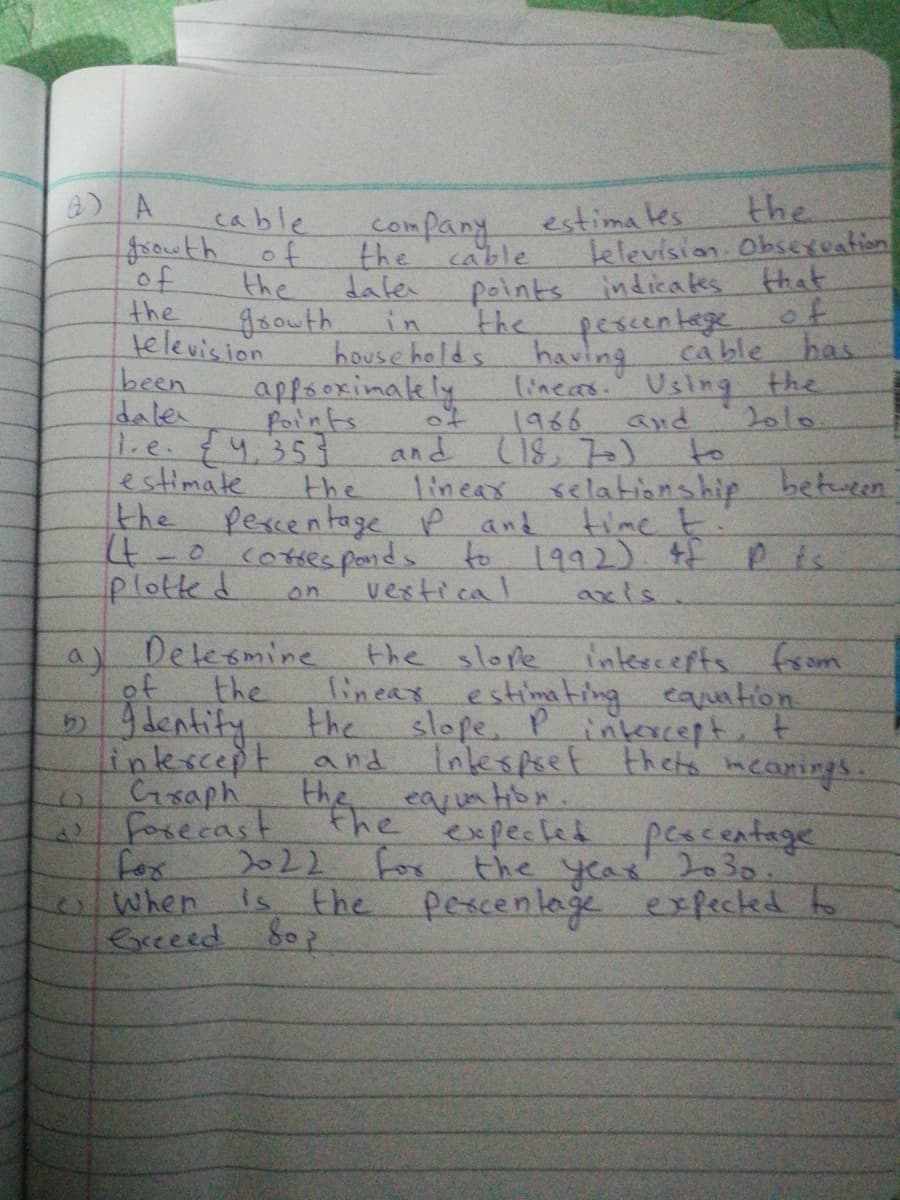 Q) A cable company estimates the
growth of the cable television. Observation
of the data points indicates that
the growth in the percentage of
television households having cable has
been approximately linear. Using the
data points of 1966 and 2010.
i.e. {4,35} and (18, 70) to
estimate the linear relationship between
the percentage P and time t.
(t-0 corresponds to 1992). If P is
plotted on vertical axis.
a) Determine the slope intercepts from
of the linear estimating equation
b) Identify the slope, P intercept, t
intercept and Interpret their meanings.
c) Graph the equation.
d) Forecast the expected percentage
for 2022 for the year 2030.
e) When is the percentage expected to
Exceed 80?